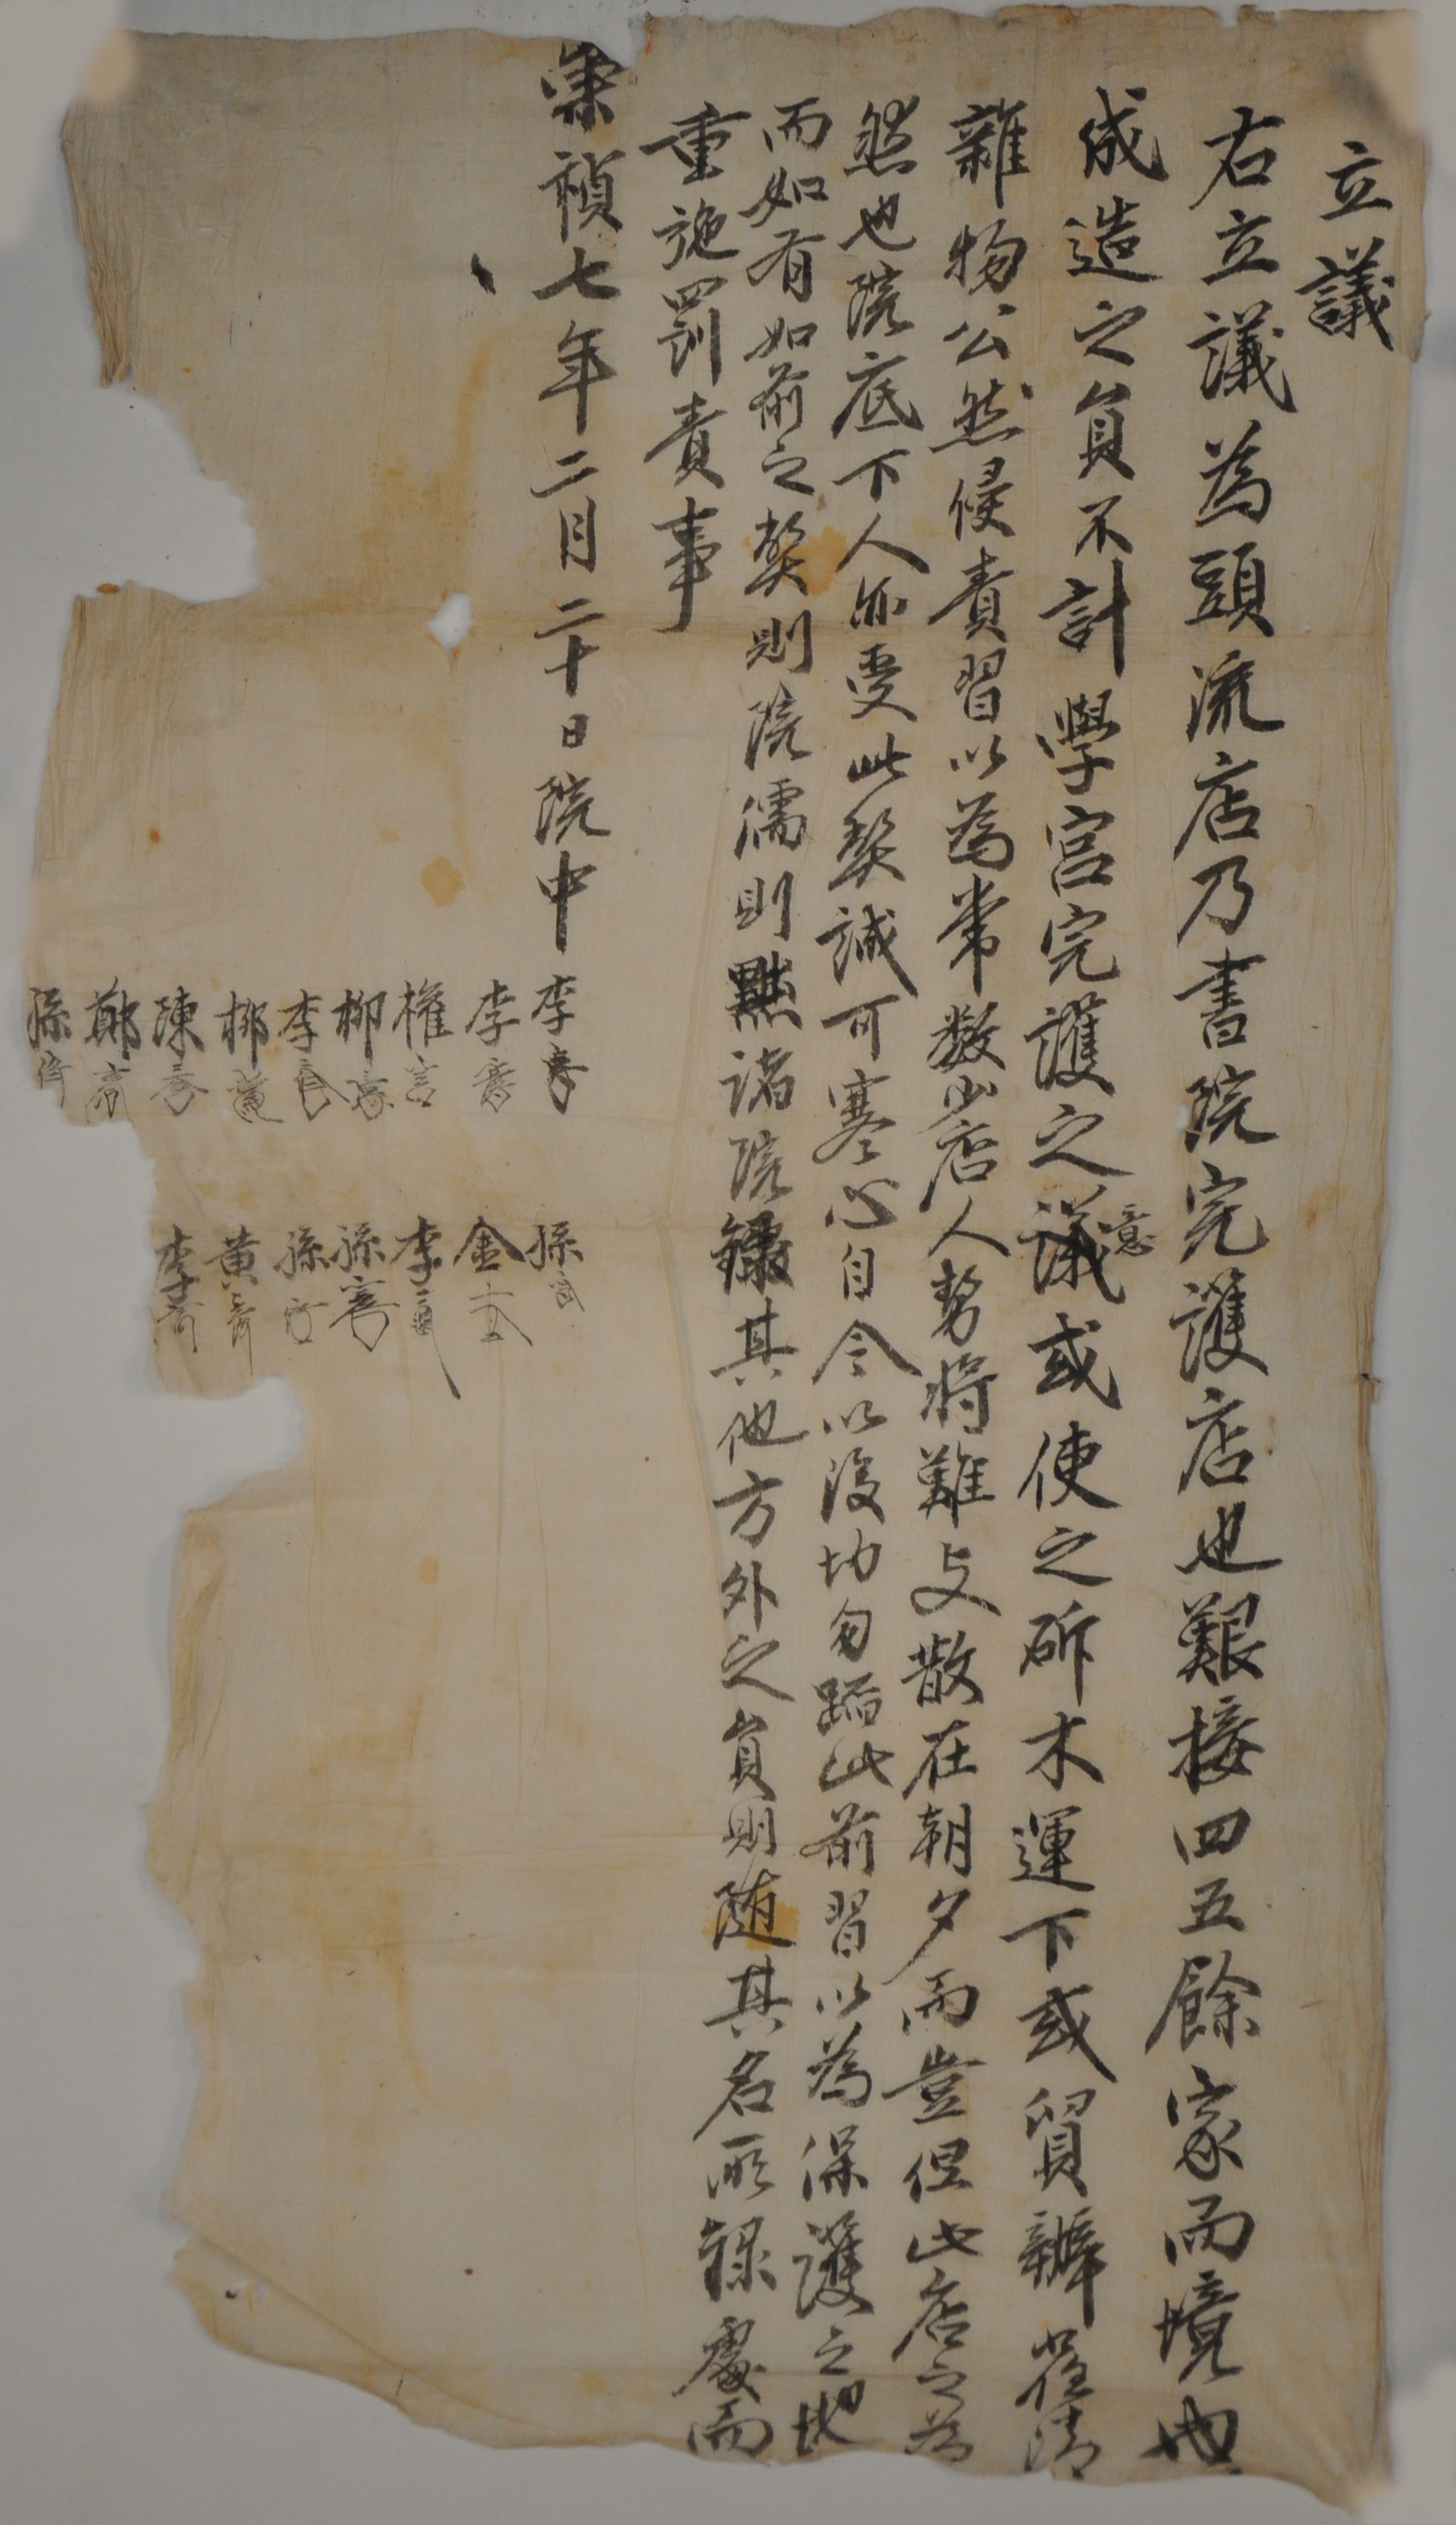 立議
右立議為頭流店乃書院完護店也艱接四五餘家而境內
成造之員不計學宮完護之議意或使之斫木運下或貿辦雀清
雜物公然侵責習以為常數小店人勢將難支散在朝夕而豈但此店之為
然也院底下人亦受此弊誠可寒心自今以後切勿踏此前習以為保護之地
而如有如前之弊則院儒則黜諸院錄其他方外之員則随其名所錄處而
重施罰責事
崇禎七年二月二十日院中
李
李
權
柳
李
柳
陳
鄭
孫
孫
金
李
孫
孫
黃
李